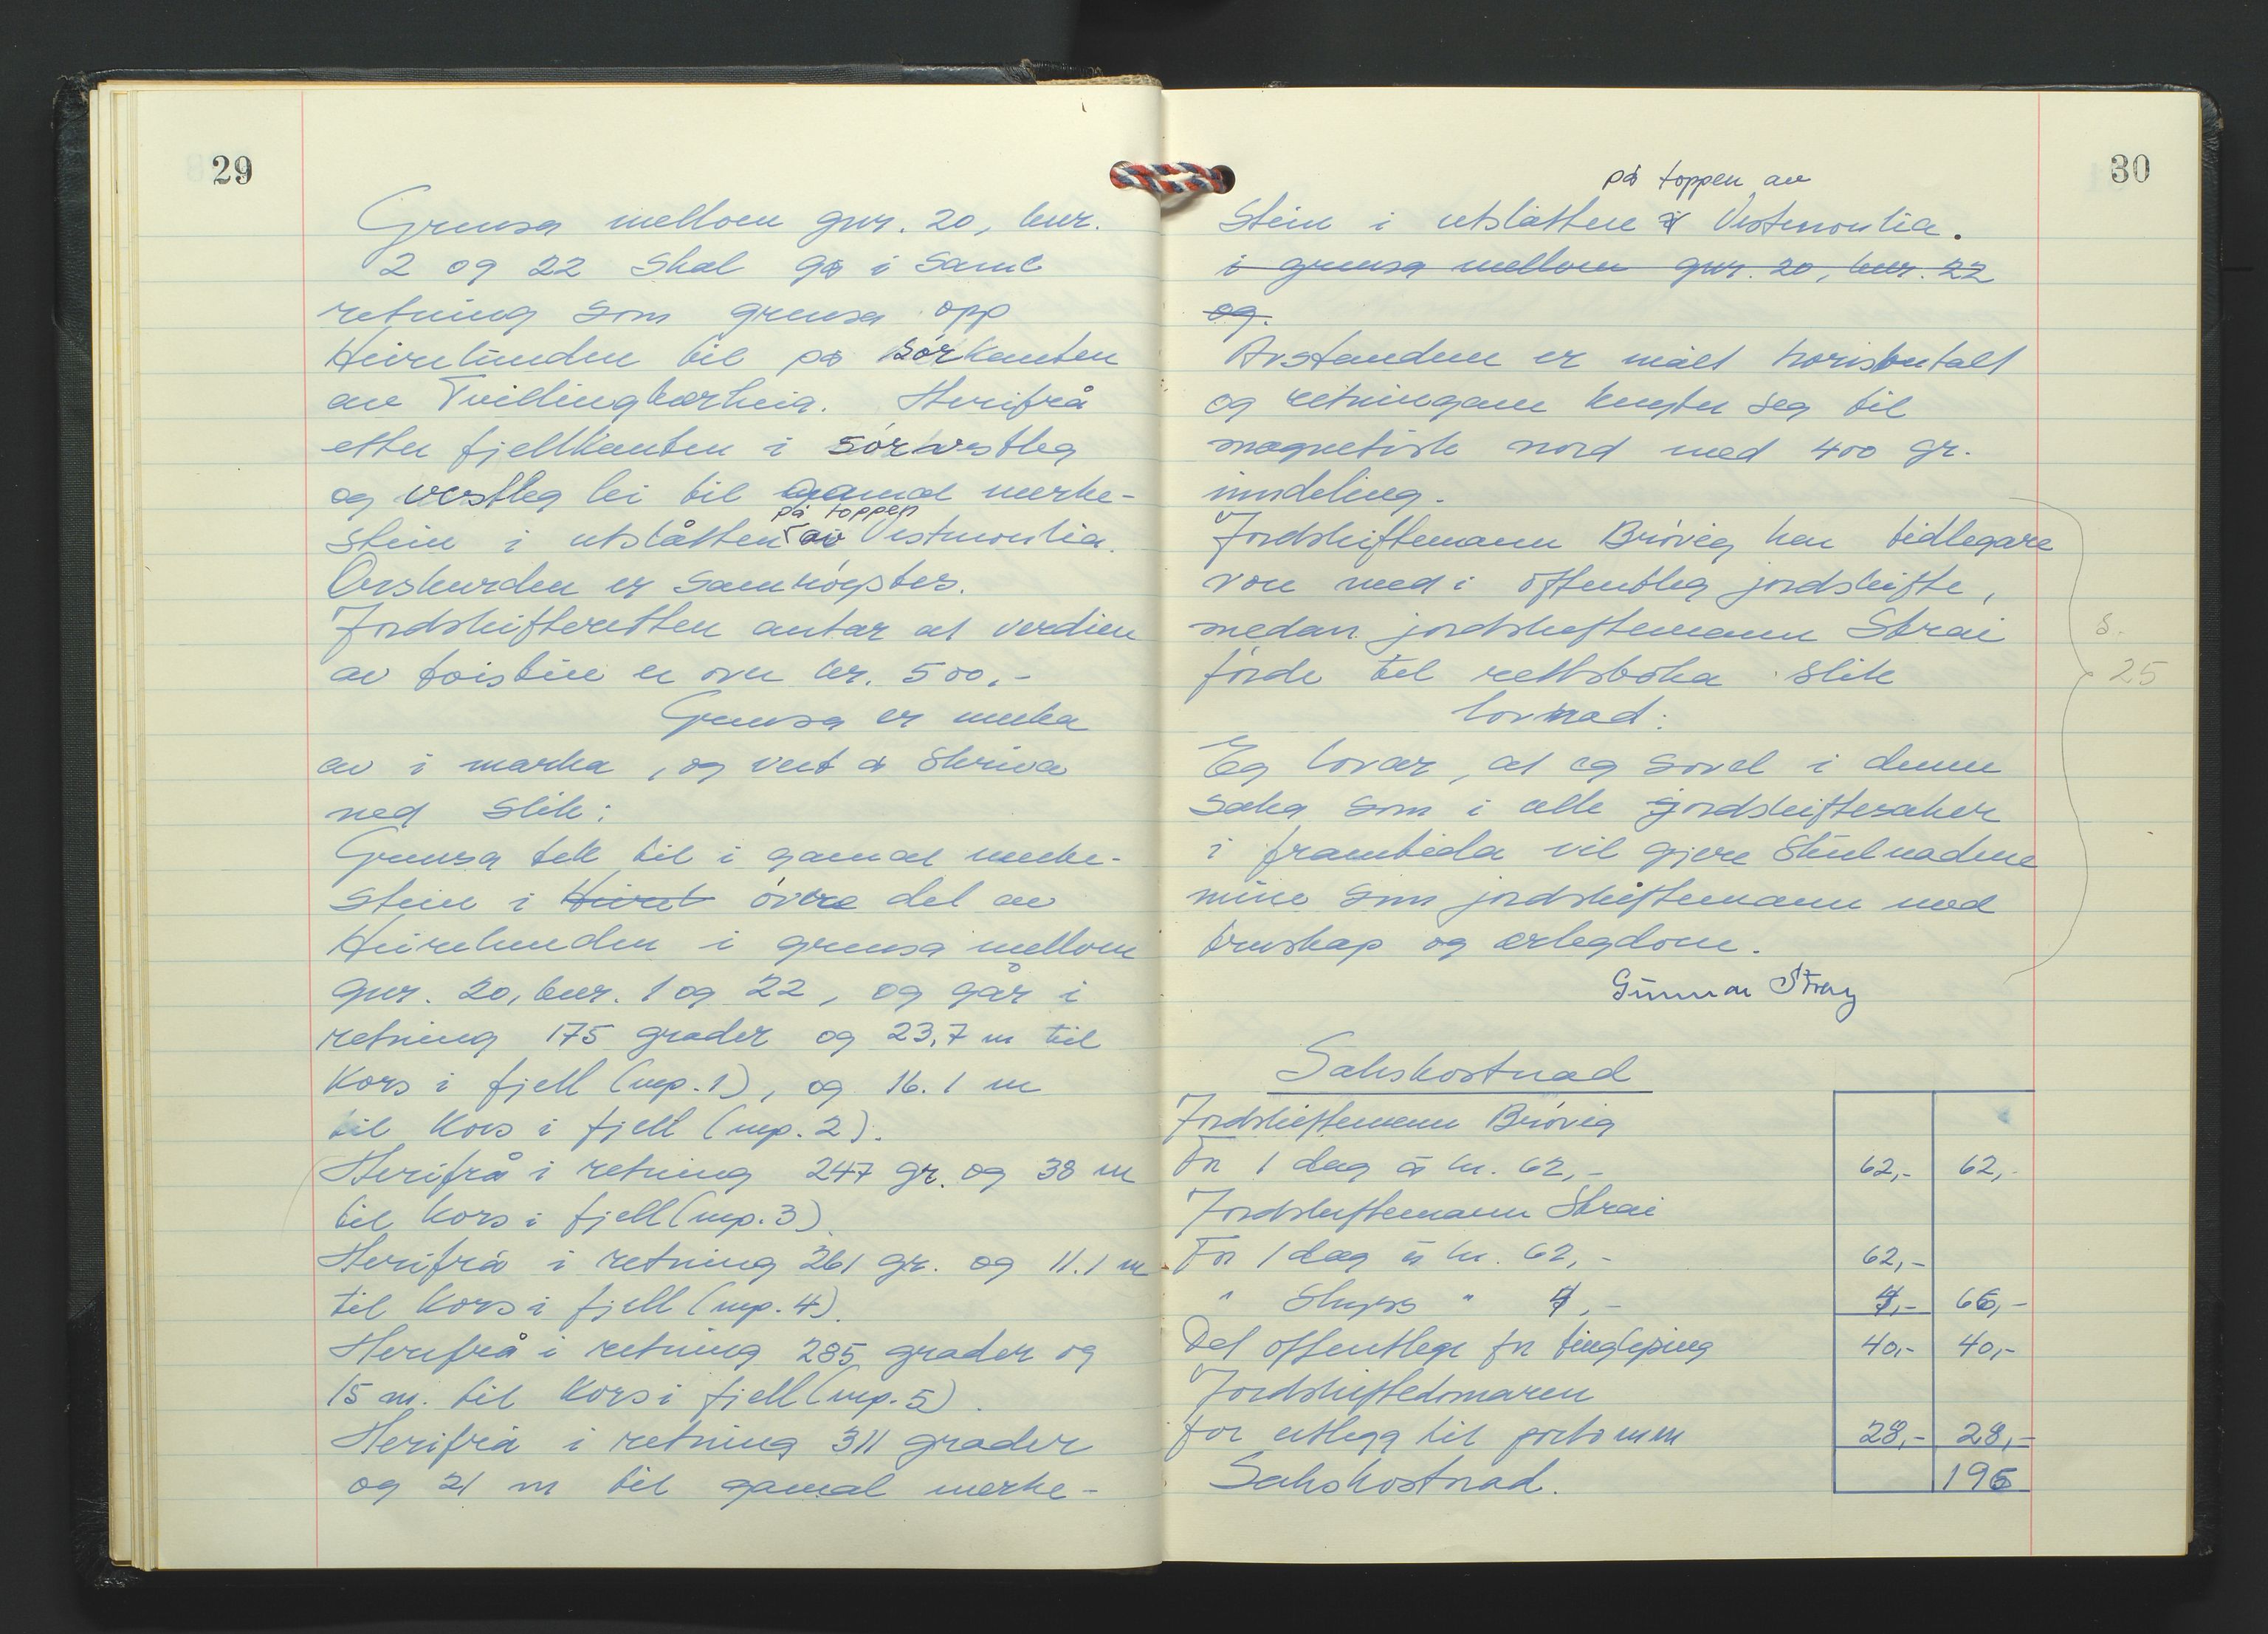 29
Grensa mellom gnr. 20, bnr.
2 og 22 skal gå i same
retning som grensa opp
Heirelunden til på sørkanten
av Tvillingtjørheia. Herifrå
etter fjellkanten i sørvestleg
og vestleg lei til gamal merke-
på toppen
stein i utslåtten av Vestmonlia.
Orskurden er samrøystes.
Jordskifteretten antar at verdien
av tvisten er over kr. 500,-
Grensa er merka
av i marka, og vert å skriva
ned slik:
Grensa tek til i gamal merke-
stein i Heirel øvre del av
Heirelunden i grensa mellom
gnr. 20, bnr. 1 og 22, og går i
retning 175 grader og 23,7 m til
kors i fjell (mp. 1), og 16.1 m
til kors i fjell (mp. 2).
Herifrå i retning 247 gr. og 38 m
til kors i fjell (mp. 3).
Herifrå i retning 261 gr. og 11.1 m
til kors i fjell (mp. 4).
Herifrå i retning 285 grader og
15 m. til kors i fjell (mp. 5).
Herifrå i retning 311 grader
og 21 m til gamal merke-
30
på toppen av
stein i utslåtten i Vestmonlia.
i grensa mellom gnr. 20, bnr. 22
og.
Avstandene er målt horisontalt
og retningane knyter seg til
magnetisk nord med 400 gr.
inndeling.
Jordskiftemann Brøvig har tidlegare
vore med i offentleg jordskifte,
medan jordskiftemann Strai
førde til rettsboka slik
lovnad:
Eg lovar, at eg sovel i denne
saka som i alle jordskiftesaker
i framtida vil gjere skulnadene
mine som jordskiftemann med
truskap og ærlegdom.
Gunnar Stray
s.
25
Sakskostnad
Jordskiftemann Brøvig
For 1 dag à kr. 62,- 62,- 62,-
Jordskiftemann Strai
For 1 dag à kr. 62,- 62,-
" skyss " 4,- 4,- 66,-
Det offentlege for tinglysing 40,- 40,-
Jordskiftedomaren
for utlegg til porto m m 28,- 28,-
Sakskostnad. 196